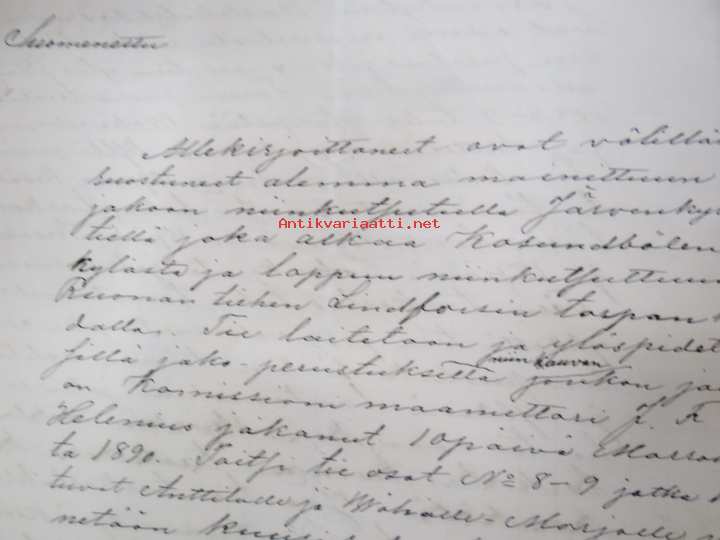 Suomenettu
Allekirjoittaneet ovat välillä
suostuneet alemma mainittuun
jakoon niinkutsutulla Järvenky
Antikvariaatti.net
tiellä joka alkaa Kosundbölen
kylästä ja loppuu niinkutsuttuun
Ruonan tiehen Lindforsin torpan
dalla. Tie laitetaan ja ylöspidet
niin kauvan
sillä jako-perustuksella jonkon ja
on Komissioni maamettari J. F.
Helenius jakanut 10 päivä Marras
ta 1890. Paitsi tie osat No 8-9 jotka
tuvat Anttilalle ja Wähälle-Marjalle
netään